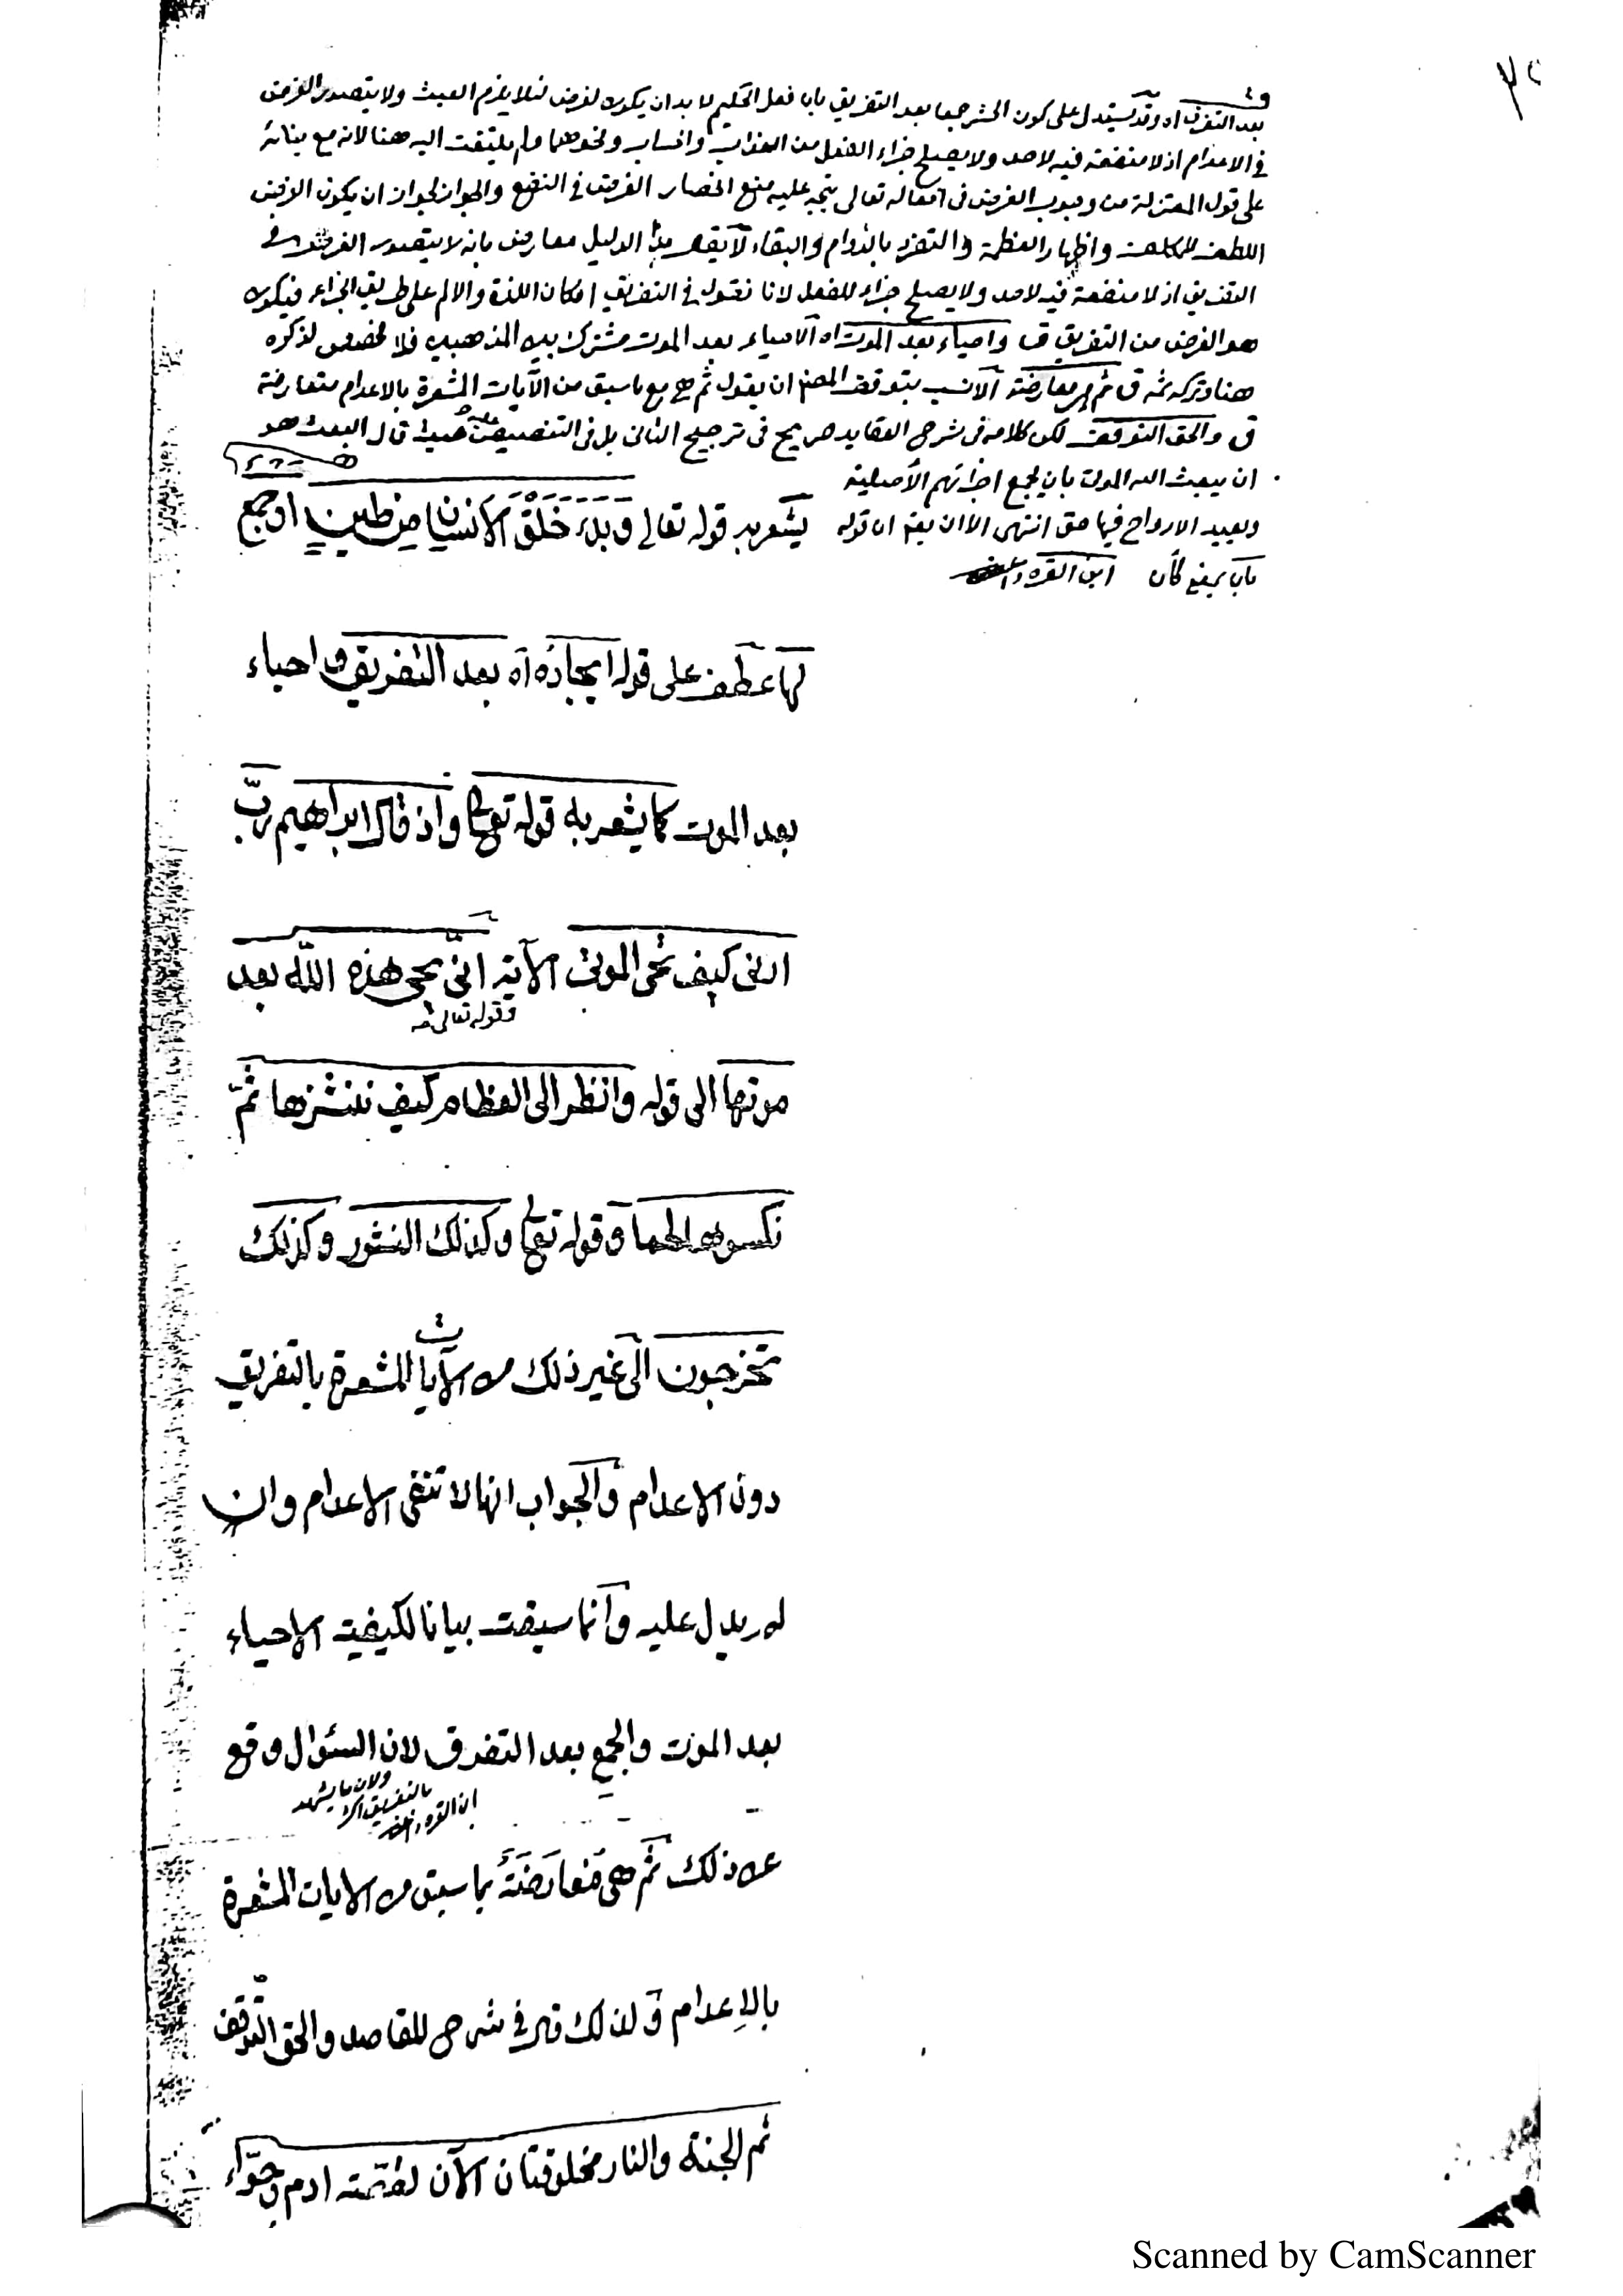 ٧٢
بعد التفريق اه وقد يستدل على كون الحشر جمعا بعد التفريق بان فعل الحكيم لا بد ان يكون لغرض لئلا يلزم العبث ولا يتصور الغرض
في الاعدام اذ لا منفعة فيه لاحد ولا يصلح جزاء الفعل من العذاب والحساب ونحوهما ولم يلتفت اليه هنا لانه مع بنائه
على قول المعتزلة من وجوب الغرض في افعاله تعالى يتجه عليه منع انحصار الغرض في النفع والجزاء لجواز ان يكون الغرض
اللطف للمكلف واظهار العظمة والتفرد بالدوام والبقاء لا يقال هذا الدليل معارض بانه لا يتصور الغرض في
التفريق اذ لا منفعة فيه لاحد ولا يصلح جزاء للفعل لانا نقول في التفريق امكان اللذة والالم على طريق الجزاء فيكون
هو الغرض من التفريق ق واحياء بعد الموت اه الاحياء بعد الموت مشترك بين المذهبين فلا لذكره
هنا وتركه ثمه ق ثم هي معارضة الانسب بتوقف المصنف ان يقول ثم هي مع ما سبق من الآيات المشعرة بالاعدام متعارضة
ق والحق التوقف لكن كلامه في شرح العقايد صريح في ترجيح الثاني بل في التنصيص عليه حيث قال البعث هو
ان يبعث الله الموتى بان يجمع اجزائهم الأصلية
ويعيد الارواح فيها انتهى الا ان قوله
بان يجمع ابن القره داغي
يشعر به قوله تعالى وَبَدَءَ خَلْقَ الانسان من طين او جمع
لها عطف على قوله ايجاده اه بعد التفريق واحياء
بعد الموت كما يشعر به قوله تعالى واذ قال ابراهيم ربّ
ارنى كيف تحى الموتى الآية انّى يحيى هذه الله بعد
وقوله تعالى
موتها الى قوله وانظر الى العظام كيف ننشزها ثمّ
نكسوها لحما وقوله تعالى وكذلك النشور وكذلك
تخرجون الى غير ذلك من الآيات المشعرة بالتفريق
دون الاعدام والجواب انها لا تنفى الاعدام وان
لم يدل عليه وانما سيقت بيانا لكيفية الاحياء
بعد الموت والجمع بعد التفرق لان السئوال وقع
ولان ما يشهد
بالتفريق
ابن القره داغي
عن ذلك ثم هى معارَضَةٌ بما سبق من الايات المشعرة
بالاِعدام ولذلك قال في شرح المقاصد والحق التّوقف
ثم الجنة والنار مخلوقتان الآن لقصّة ادم وحوّاء
Scanned by CamScanner